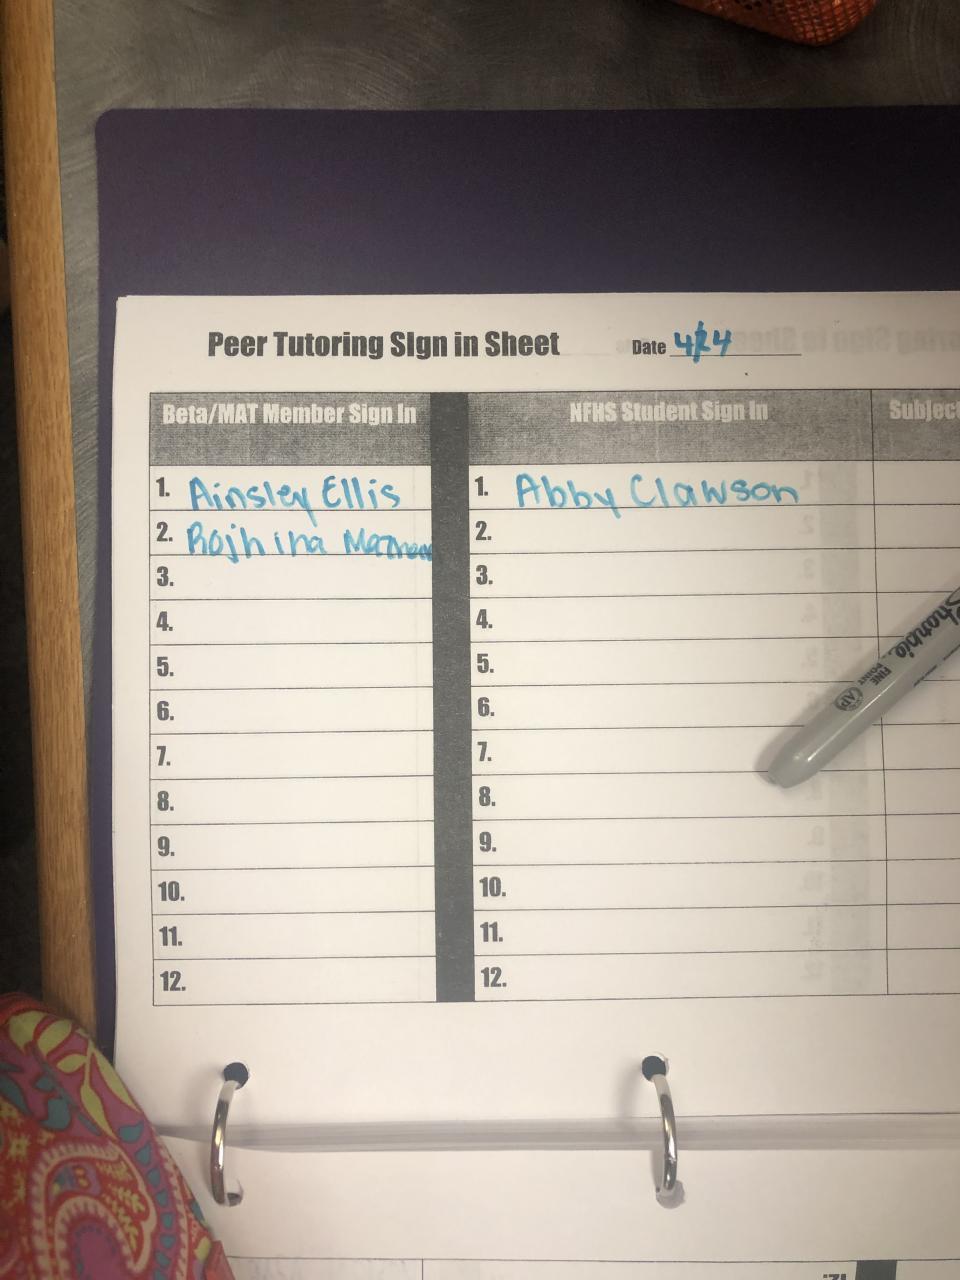 Peer Tutoring SIgn in Sheet Date 4/24
Beta/MAT Member Sign In NFHS Student Sign In Subject
1. Ainsley Ellis 1. Abby Clawson
2. Rojhina 2.
3. 3.
4. 4.
5. 5.
6. 6.
7. 7.
8. 8.
9. 9.
10. 10.
11. 11.
12. 12.
Sharpie
FINE
POINT
AP
12.